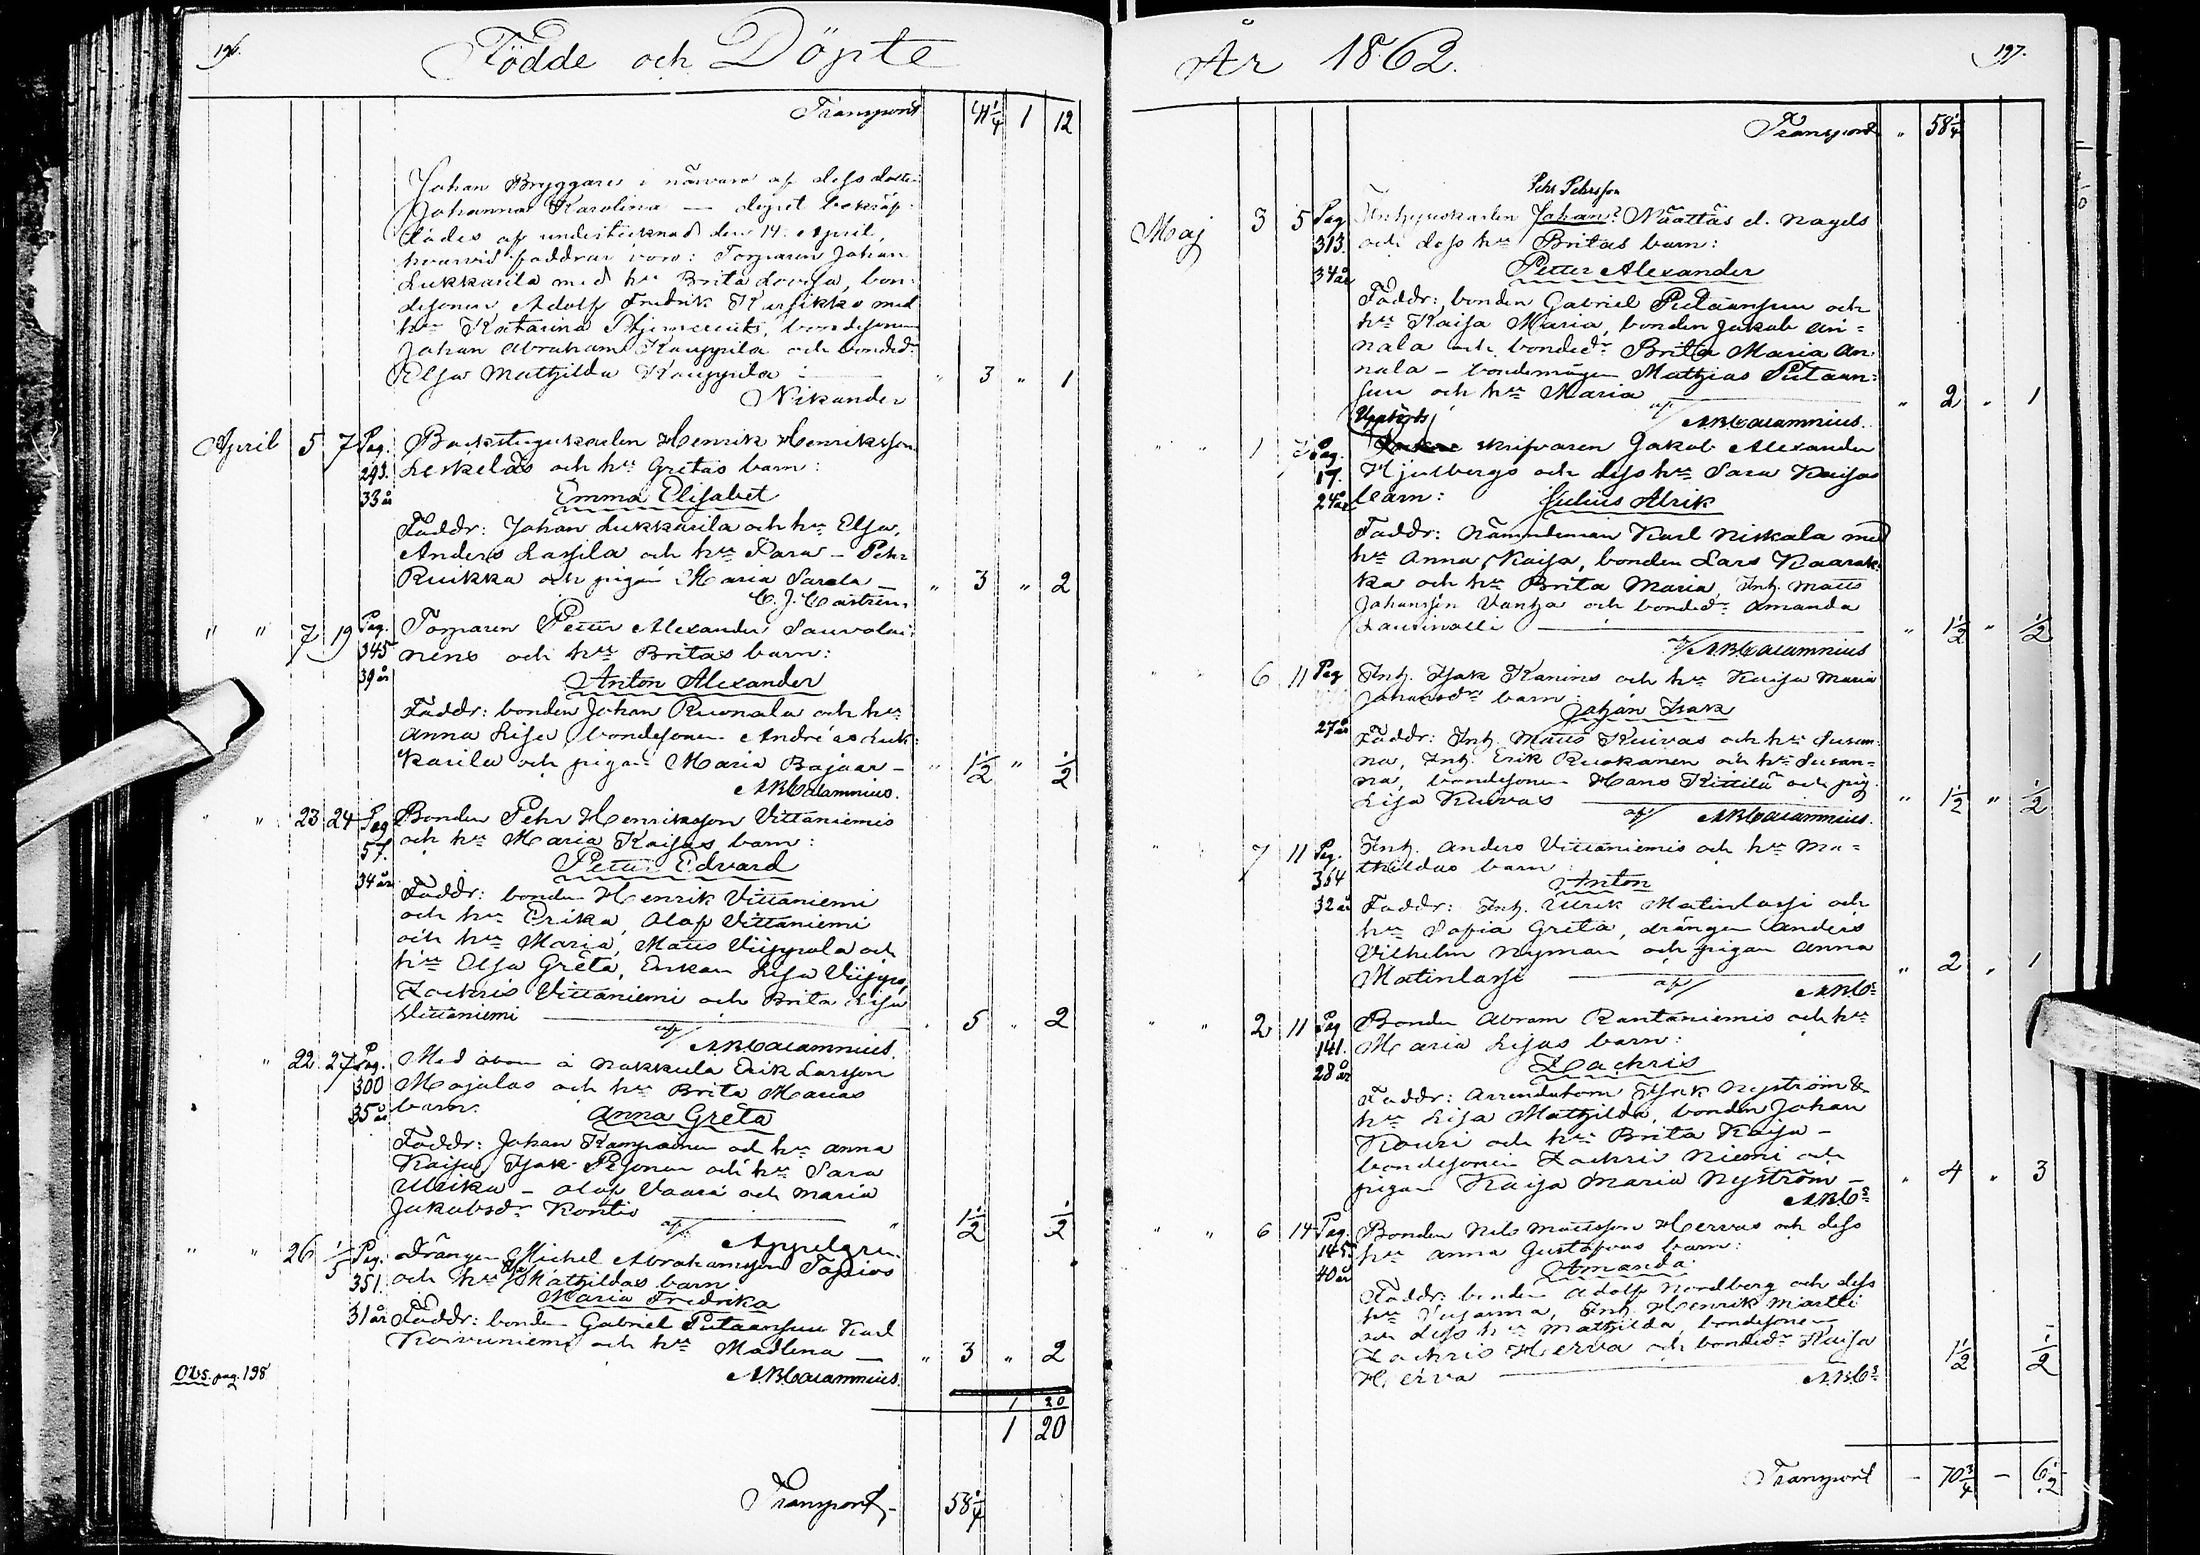 196.
Födde och Döpte
Transport 41 1/4 1 12
Johan Bryggare i närvaro af dess dotter
Johanna Karolina — dopet bekräf-
tades af undertecknad den 14 April,
hvarvid faddrar voro: Torparen Johan
Lukkarila med hu Brita Lovisa, bon-
desonen Adolf Fredrik Karsikko med
hu Katarina bondesonen
Johan Abraham Kauppila och bonded:
Elsa Mathilda Kauppila — " 3 " 1
Nikander
April 5 7 Pag. Backstugukarlen Henrik Henriksson
293. Leskeläs och hu Gretas barn:
33 år Emma Elisabet
Faddr: Johan Lukkarila och hu Elsa,
Anders Lassila och hu Sara — Pehr
Ruikka och pigan Maria Sarela — " 3 " 2
C. J. Castrén.
" " 7 19 Pag. Torparen Petter Alexander Sauvolai-
345 nens och hu Britas barn:
39 år Anton Alexander
Faddr: bonden Johan Ruonala och hu
Anna Lisa, bondesonen Andréas Luk-
karila och pigan Maria Bajaar — " 1 1/2 " 1/2
A.B. Calamnius.
" " 23 24 Pag Bonden Pehr Henriksson Vittaniemis
57. och hu Maria Kaisas barn:
34 år Petter Edvard
Faddr: bonden Henrik Vittaniemi
och hu Erika, Olof Vittaniemi
och hu Maria, Matts Viippola och
hu Elsa Greta, Enkan Lisa Viippo,
Zachris Vittaniemi och Brita Lisa
Vittaniemi — 5 " 2
af/ A.B. Calamnius.
" 22. 27 Pag. Med åbon å Nakkula Erik Larsson
300 Majalas och hu Brita Marias
35 år barn: Anna Greta
Faddr: Johan Kamp och hu Anna
Kaisa, Isak och hu Sara
Ulrika — Olof Vaara och Maria
Jakobsdr Kontio — " 1 1/2 1/2
af/ Appelgren
" " 26 1/5 Pag. Drängen Michel Abrahamsson Tapios
351. och hu Elsa Mathildas barn
Maria Fredrika
31 år Faddr: bonden Gabriel Putaansuu Karl
Koivuniemi och hu Madlena — " 3 " 2
Obs. pag. 198 A.B. Calamnius.
1 20
1 20
Transport — 58 1/4
År 1862.
197.
Transport " 58 1/4
Pehr Pehrsson
Maj 3 5 Pag Inhyseskarlen Johan? Näättäs el. Nagels
313. och dess hu Britas barn:
34 år Petter Alexander
Faddr: bonden Gabriel Putaansuu och
hu Kaisa Maria, bonden Jakob An-
nala och bondedr Brita Maria An-
nala — bondemågen Mathias Putaan-
suu och hu Maria — " 2 " 1
af/ A.B. Calamnius.
Uppbörds
" " 1 Pag. skrifvaren Jakob Alexander
17. Hjulbergs och dess hu Sara Kaisas
24 år barn: Julius Alrik
Faddr: Nämndeman Karl Niskala med
hu Anna Kaisa, bonden Lars Kaarak-
ka och hu Brita Maria, Inh. Matts
Johansson Vanha och bondedr Amanda
Laurinolli — " 1 1/2 " 1/2
af/ A.B. Calamnius
" " 6 11 Pag Inh. Isak Kanins och hu Kaisa Maria
Johansdrs barn:
Johan Isak
27 år Faddr: Inh. Matts Kuivas och hu Susan-
na, Inh. Erik Ruokanen och hu Susan-
na, bondesonen Hans Kittilä och pig.
Lisa Kuivas — " 1 1/2 " 1/2
af/ A.B. Calamnius.
" " 7 11 Pag. Inh. Anders Vittaniemis och hu Ma-
354 thildas barn
Anton
32 år Faddr: Inh. Ulrik Matinlassi och
hu Sofia Greta, drängen Anders
Vilhelm Nyman och pigan Anna
Matinlassi — " 2 " 1
af/ A.B.Cs
" " 2 11 Pag Bonden Abram Rantaniemis och hu
141. Maria Lisas barn:
28 år Zachris
Faddr: Arrendatorn Isak Nyström &
hu Lisa Mathilda, bonden Johan
Kouri och hu Brita Kaisa —
bondesonen Zachris Niemi och
pigan Kaisa Maria Nyström — " 4 " 3
A.B.Cs
" " 6 14 Pag. Bonden Nils Mattsson Hervas och dess
145. hu Anna Gustafvas barn:
40 år Amanda
Faddr: bonden Adolf Nordberg och dess
hu Susanna, Inh. Henrik Martti
och dess hu Mathilda, bondesonen
Zachris Herva och bondedr Kaisa
Herva — 1 1/2 1/2
A.B.Cs
Transport — 70 3/4 — 6 1/2